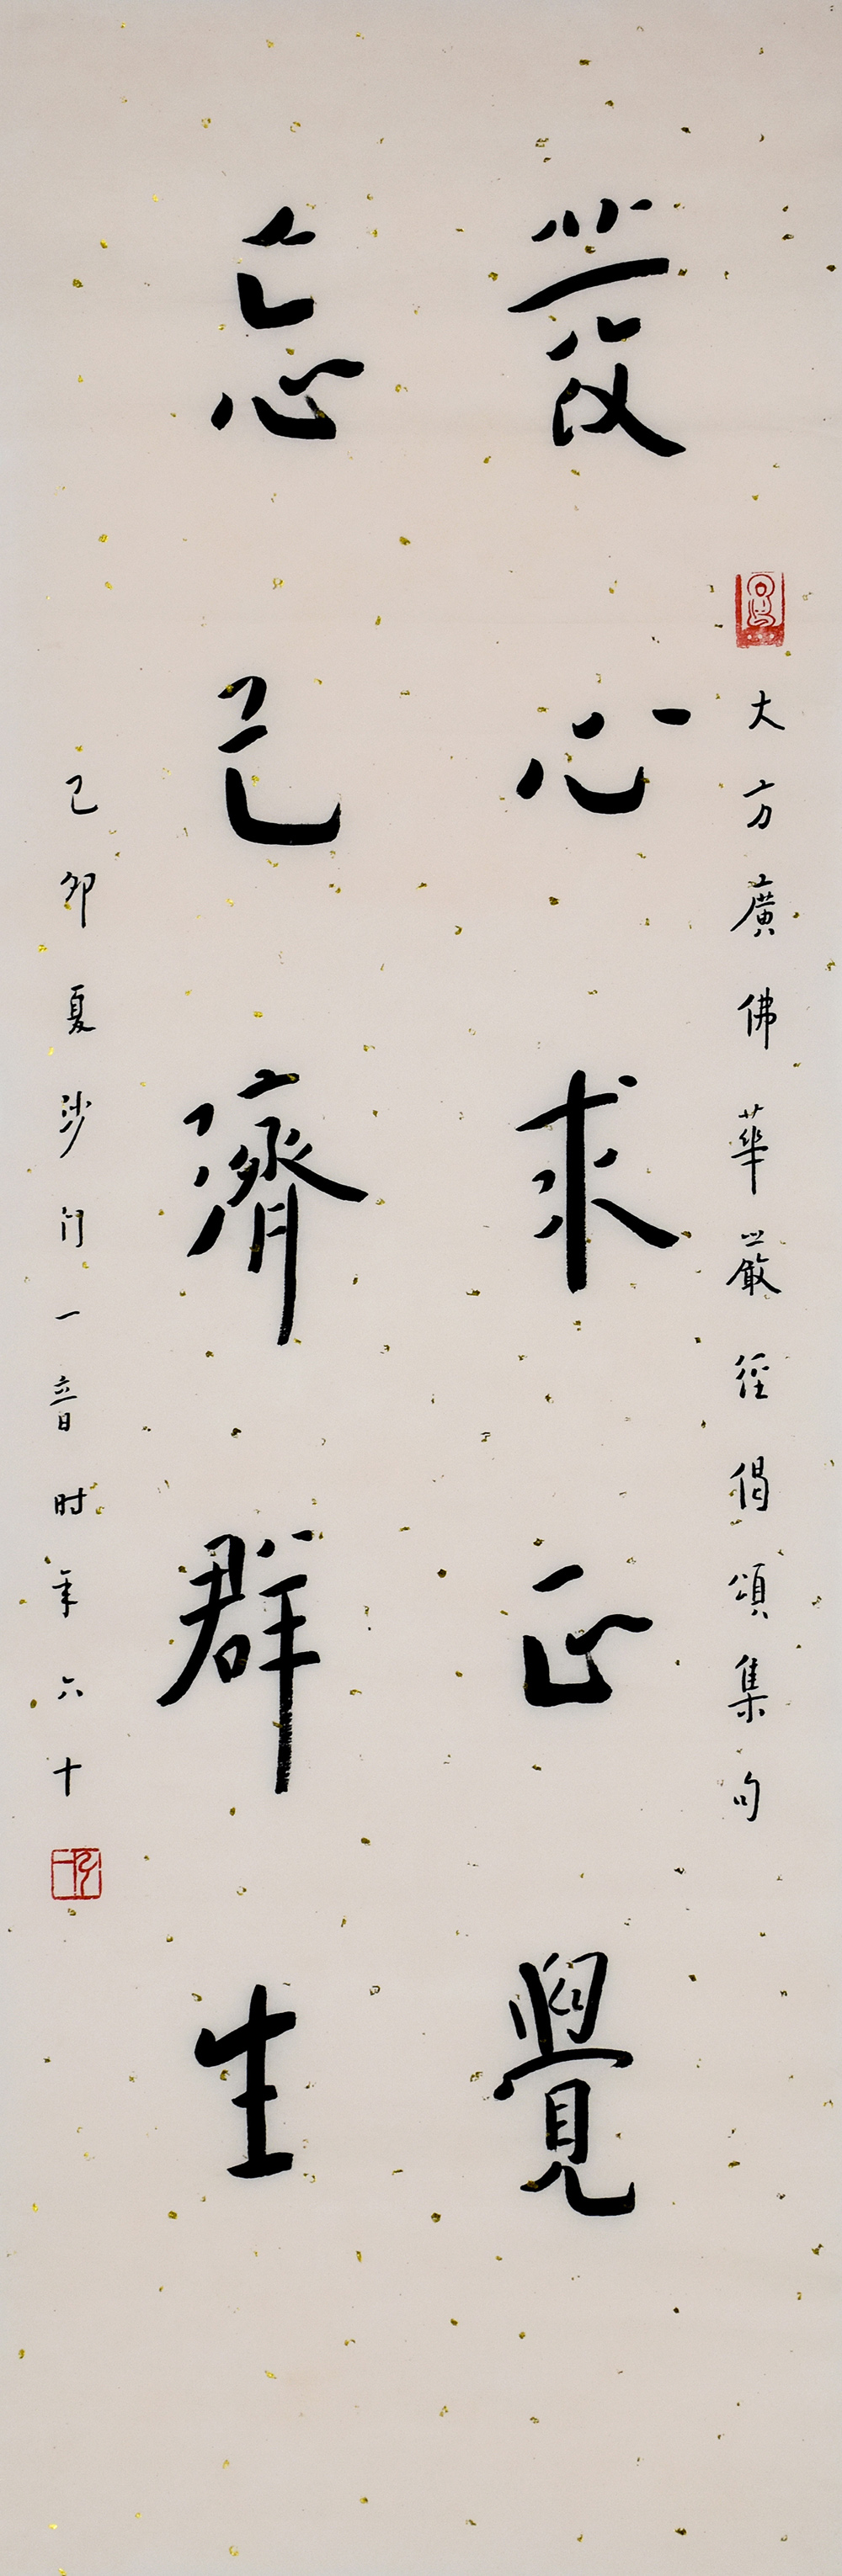 大方廣佛華嚴經偈頌集句
發心求正覺
忘己濟群生
己卯夏沙門一音时年六十